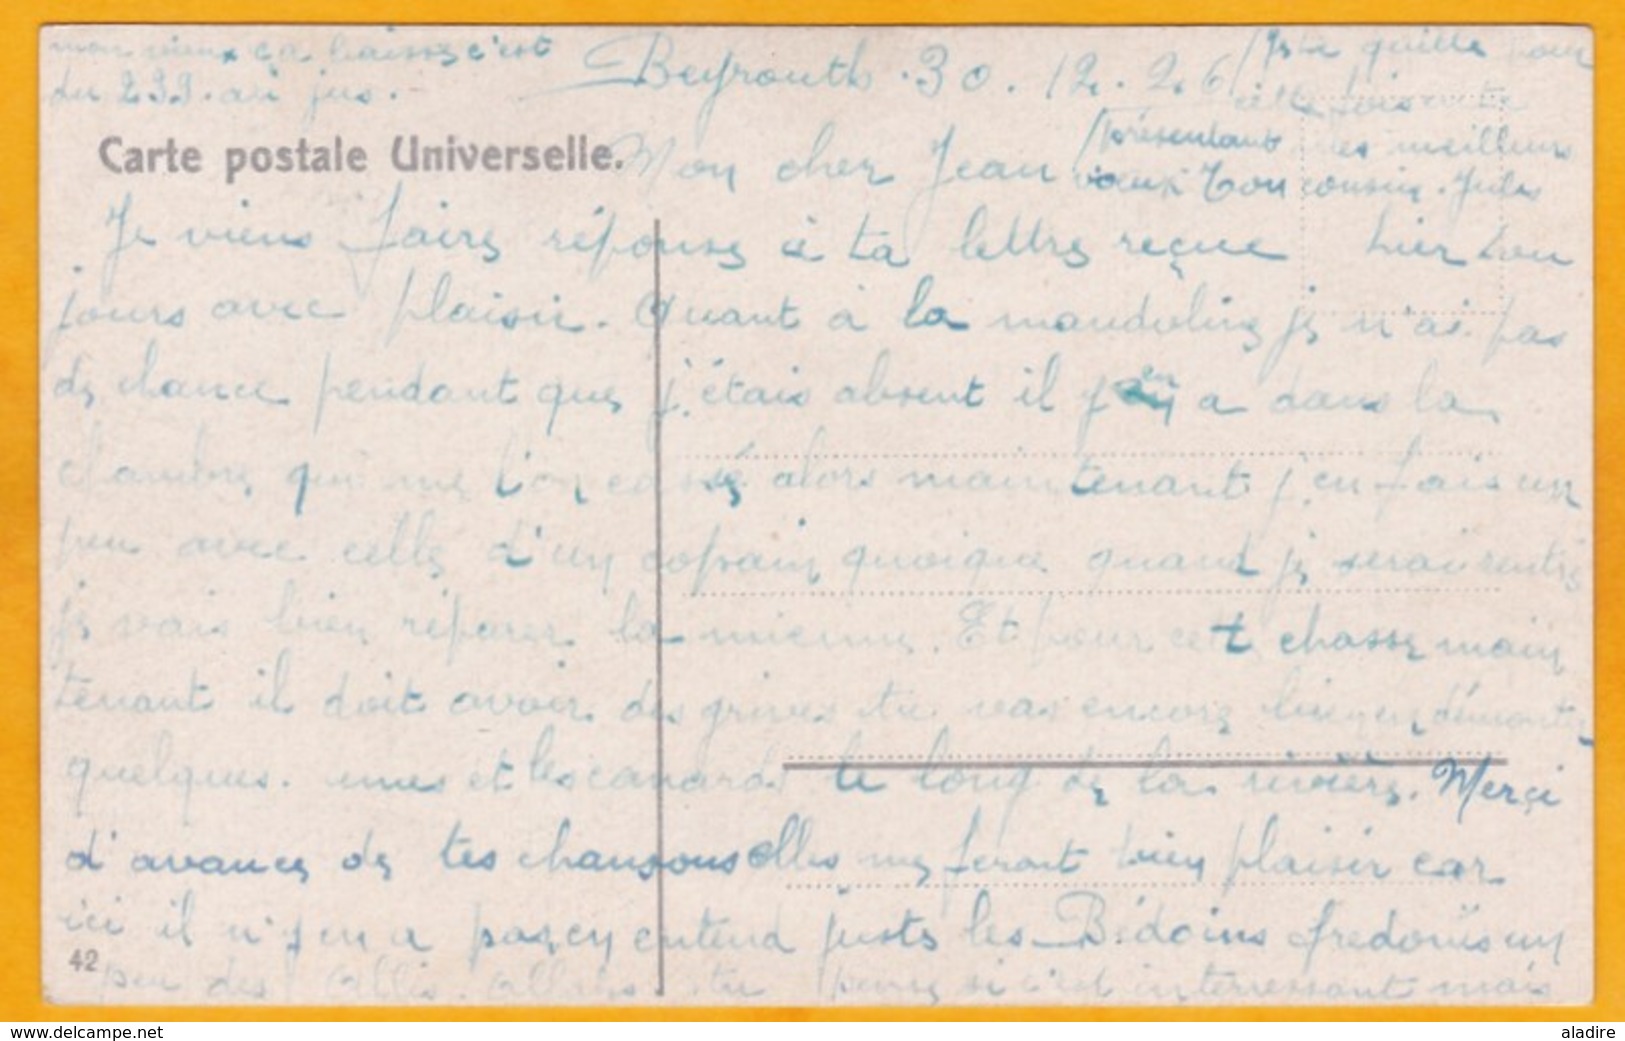 mon vieux ça baisse c'est
du 299. au jus.
Beyrouth. 30. 12. 26
Carte postale Universelle.
Mon cher Jean
Je viens faire réponse à ta lettre reçue hier tou
jours avec plaisir. Quant à la mandoline je n'ai pas
de chance pendant que j'étais absent il y en a dans la
chambre qui me l'on cassé alors maintenant j'en fais un
peu avec celle d'un copain quoique quand je serai rentré
je vais bien réparer la mienne. Et pour cet chasse main
tenant il doit avoir des grives tu vas encore bien en démonter
quelques. unes et les canards le long de la rivière. Merçi
d'avance de tes chansons elles me feront bien plaisir car
ici il n'y en a pas, en entend juste les Bédoins fredonïs un
peu des tu penses si c'est interressant mais
je te quitte pour
cette fois
présentant mes meilleurs
voeux Ton cousin. Jules
42
www.delcampe.net
aladire